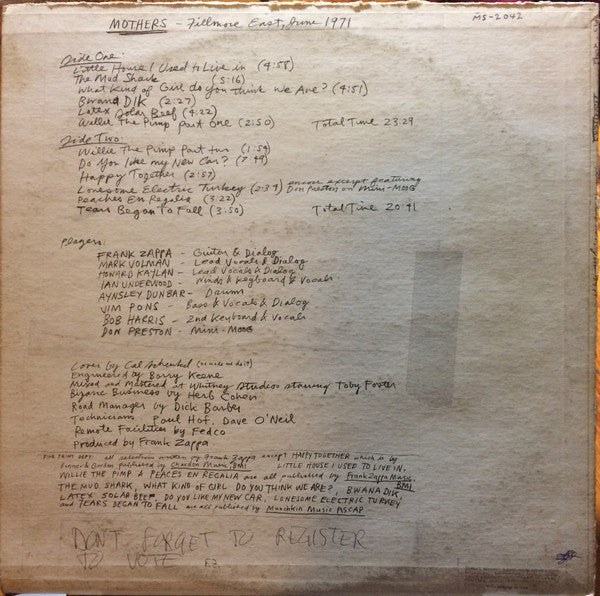 MOTHERS – Fillmore East, June 1971
MS-2042
Side One:
Little House I Used to Live in (4:58)
The Mud Shark (5:16)
What Kind of Girl do you think We Are? (4:51)
Bwana DIK (2:27)
Latex Solar Beef (4:22)
Willie The Pimp Part One (2:50) Total Time 23:29
Side Two:
Willie The Pimp Part two (1:54)
Do You like my New Car? (7:49)
Happy Together (2:57)
Lonesome Electric Turkey (2:34) encore excerpt featuring Don Preston on Mini-MOOG
Peaches En Regalia (3:22)
Tears Began To Fall (3:50) Total Time 20:41
Players:
FRANK ZAPPA – Guitar & Dialog
MARK VOLMAN – Lead Vocals & Dialog
HOWARD KAYLAN – Lead Vocals & Dialog
IAN UNDERWOOD – Winds & Keyboard & Vocals
AYNSLEY DUNBAR – Drums
JIM PONS – Bass & Vocals & Dialog
BOB HARRIS – 2nd Keyboard & Vocals
DON PRESTON – Mini-MOOG
Cover by Cal Schenkel (he made me do it)
Engineered by Barry Keene
Mixed and Mastered at Whitney Studios starring Toby Foster
Bizarre Business by Herb Cohen
Road Manager by Dick Barber
Technicians Paul Hof, Dave O'Neil
Remote Facilities by Fedco
Produced by Frank Zappa
FINE PRINT DEPT: all selections written by Frank Zappa except HAPPY TOGETHER which is by
Bonner & Gordon published by Chardon Music, BMI LITTLE HOUSE I USED TO LIVE IN,
WILLIE THE PIMP & PEACHES EN REGALIA are all published by Frank Zappa Music, BMI
THE MUD SHARK, WHAT KIND OF GIRL DO YOU THINK WE ARE?, BWANA DIK,
LATEX SOLAR BEEF, DO YOU LIKE MY NEW CAR, LONESOME ELECTRIC TURKEY
and TEARS BEGAN TO FALL are all published by Munchkin Music ASCAP
DON'T FORGET TO REGISTER
TO VOTE FZ